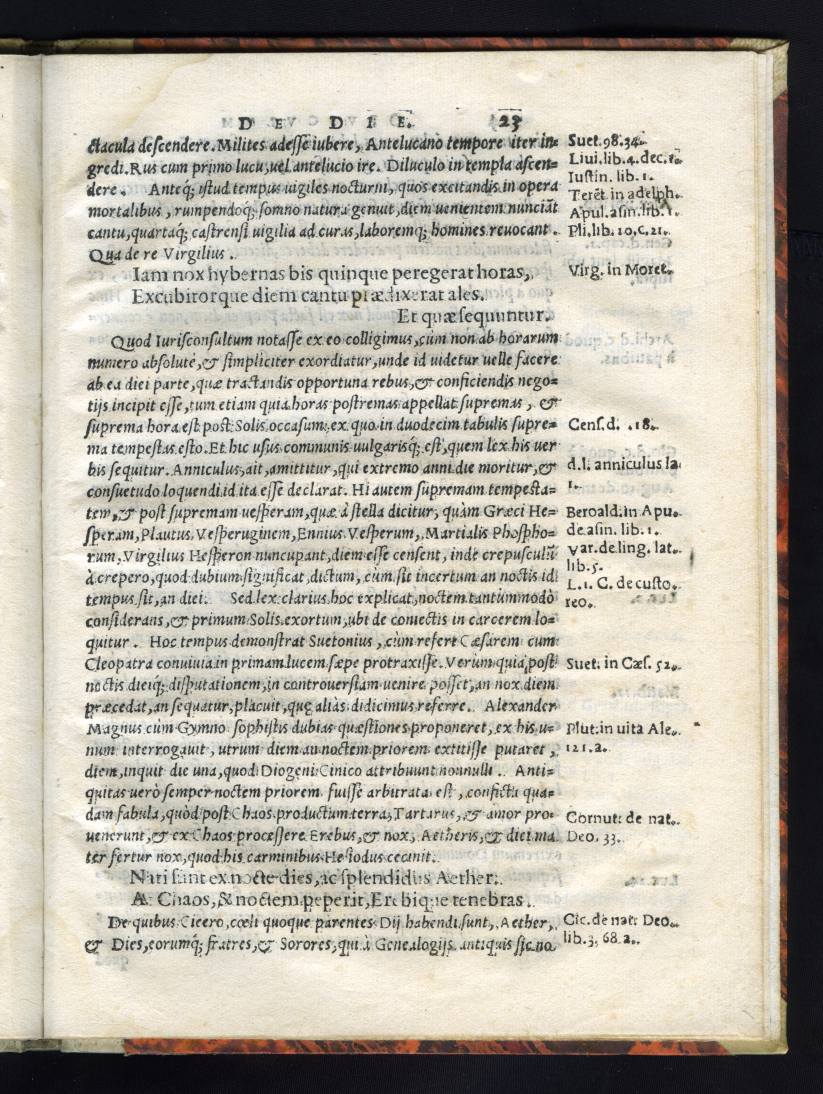 D E D I E. 23
ctacula descendere. Milites adesse iubere, Antelucano tempore iter in=
gredi. Rus cum primo lucu, uel antelucio ire. Diluculo in templa ascen=
dere. Anteq; istud tempus uigiles nocturni, quos excitandis in opera
mortalibus, rumpendoq; somno natura genuit, diem uenientem nunciāt
cantu, quartaq; castrensi uigilia ad curas, laboremq; homines reuocant.
Qua de re Virgilius.
Iam nox hybernas bis quinque peregerat horas,
Excubitorque diem cantu prædixerat ales.
Et quæ sequuntur.
Quod Iurisconsultum notasse ex eo colligimus, cùm non ab horarum
numero absolutè, & simpliciter exordiatur, unde id uidetur uelle facere
ab ea diei parte, quæ tractandis opportuna rebus, & conficiendis nego=
tijs incipit esse, tum etiam quia horas postremas appellat supremas, &
suprema hora est post Solis occasum: ex quo in duodecim tabulis supre=
ma tempestas esto. Et hic usus communis uulgarisq; est, quem lex his uer
bis sequitur. Anniculus, ait, amittitur, qui extremo anni die moritur, &
consuetudo loquendi id ita esse declarat. Hi autem supremam tempesta=
tem, & post supremam uesperam, quæ à stella dicitur, quàm Græci He=
speram, Plautus Vesperuginem, Ennius Vesperum, Martialis Phospho=
rum, Virgilius Hesperon nuncupant, diem esse censent, inde crepusculū
à crepero, quod dubium significat, dictum, cùm sit incertum an noctis id
tempus sit, an diei. Sed lex clarius hoc explicat, noctem tantummodò
considerans, & primum Solis exortum, ubi de coniectis in carcerem lo=
quitur. Hoc tempus demonstrat Suetonius, cùm refert Cæsarem cum
Cleopatra conuiuia in primam lucem sæpe protraxisse. Verùm quia post
noctis dieiq; disputationem, in controuersiam uenire posset, an nox diem
præcedat, an sequatur, placuit, quę aliàs didicimus referre. Alexander
Magnus cùm Gymno sophistis dubias quæstiones proponeret, ex his u=
num interrogauit, utrum diem an noctem priorem extitisse putaret,
diem, inquit die una, quod Diogeni Cinico attribuunt nonnulli. Anti=
quitas uerò semper noctem priorem fuisse arbitrata est, conficta qua=
dam fabula, quòd post Chaos productum terra, Tartarus, & amor pro=
uenerunt, & ex Chaos processere Erebus, & nox, Aetheris, & diei ma
ter fertur nox, quod his carminibus Hesiodus cecinit.
Nati sunt ex nocte dies, ac splendidus Aether.
At Chaos, & noctem peperit, Erebique tenebras.
De quibus Cicero, cœli quoque parentes Dij habendi sunt, Aether,
& Dies, eorumq; fratres, & Sorores, qui à Genealogijs antiquis sic no
Suet. 98. 34.
Liui. lib. 4. dec. 1.
Iustin. lib. 1.
Terēt. in adelph.
Apul. asin. lib. 1.
Pli. lib. 10. C. 21.
Virg. in Moret.
Cens. d. .18.
d. l. anniculus la
1.
Beroald. in Apu.
de asin. lib. 1.
Var. de ling. lat.
lib. 5.
L. 1. C. de custo.
reo.
Suet. in Cæs. 52.
Plut. in uita Ale.
121. a.
Cornut. de nat.
Deo. 33.
Cic. de nat. Deo.
lib. 3. 68. a.